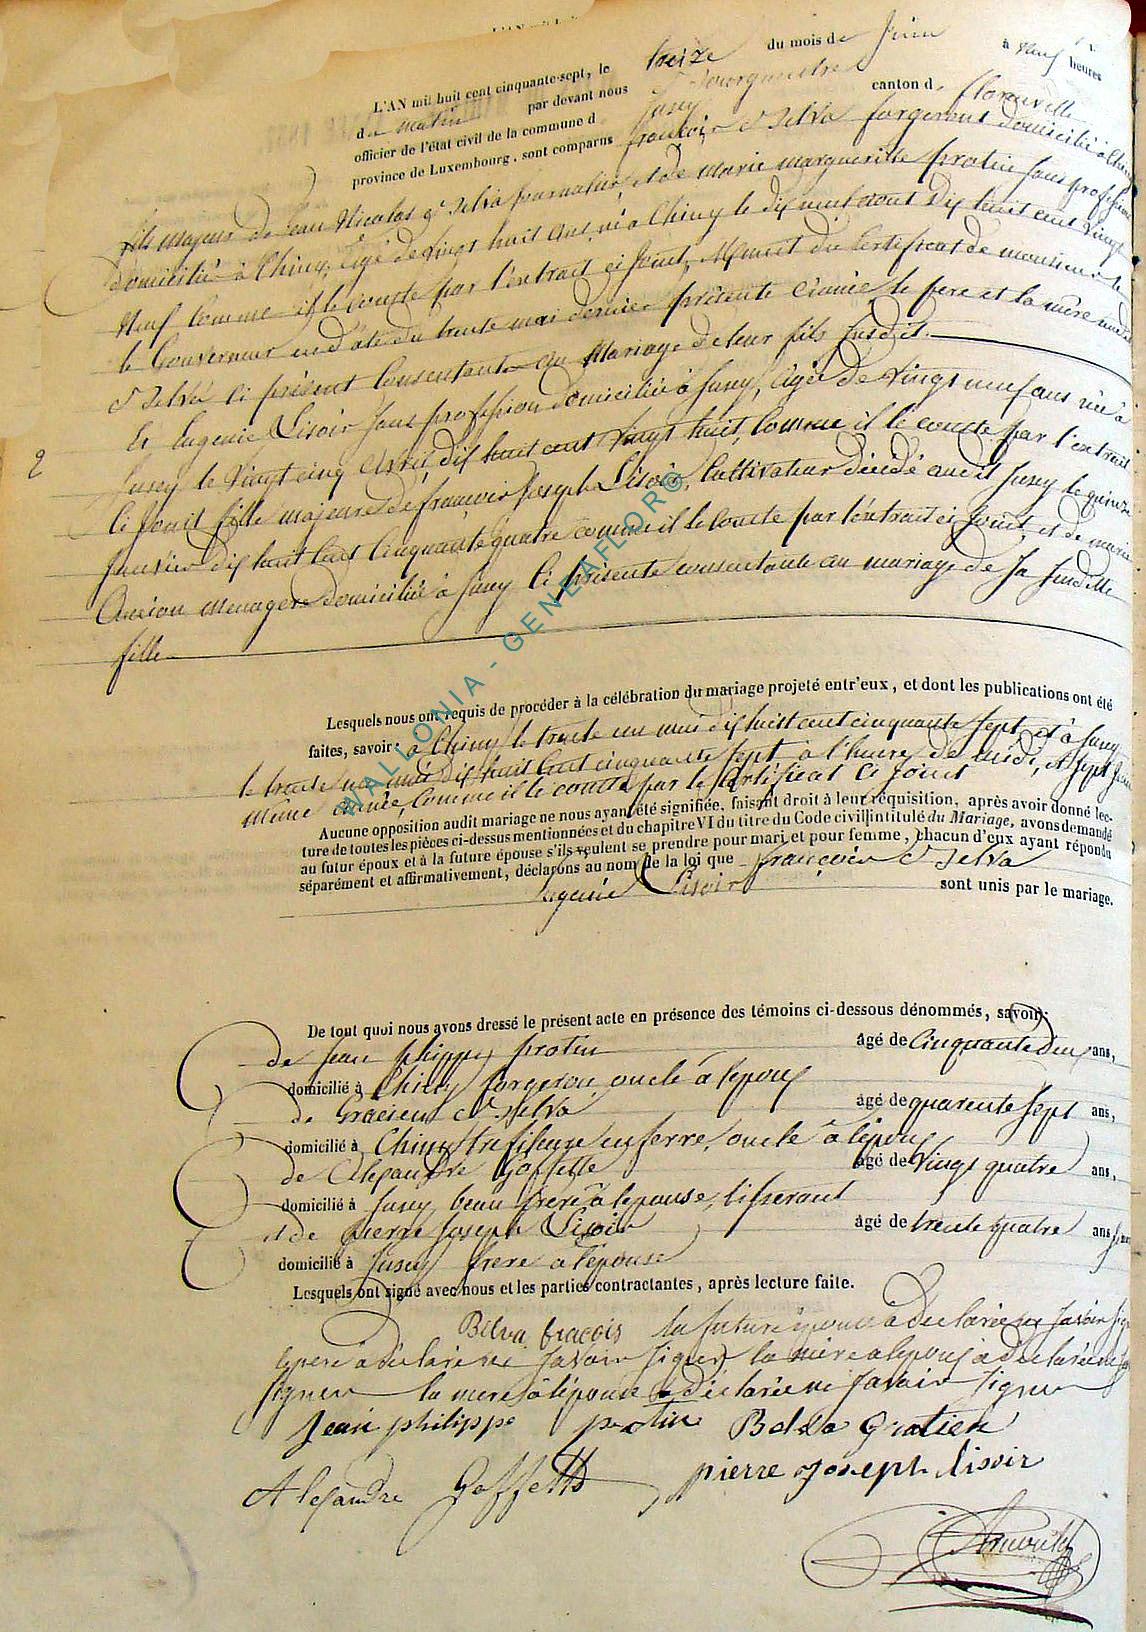 L'AN mil huit cent cinquante-sept, le treize du mois de Juin à neuf heures
du matin par devant nous Bourgmestre
officier de l'état civil de la commune d Jusey canton d. florenville
province de Luxembourg, sont comparus françois Belva forgeront domicilié à Chiny
fils majeur de Jean Nicolas Belva Journalier, et de marie margueritte protin sans profession
domicilié à Chiny, âgé de vingt huit ans, né à Chiny le dix neuf aout dix huit cent vingt
neuf comme il le conste par l'extrait ci joint, Muni du Certificat de monsieur
le Gouverneur en date du trente mai dernier présente année, le pere et la mère
Belva ci présent Consentante au Mariage de leur fils susdit.
Et Eugenie Lisoir sans profession domiciliée à Jusey, âgée de vingt neuf ans née à
Jusey le vingt cinq avril dix huit cent vingt huit, comme il le conste par l'extrait
ci joint fille majeure de francois Joseph Lisoir, Cultivateur décédé audit Jusey le quinze
Janvier dix huit cent cinquante quatre comme il le conste par l'extrait ci joint, et de marie
menagere domiciliée à Jusey ci présente consentante au mariage de sa susditte
fille
2
Lesquels nous ont requis de procéder à la célébration du mariage projeté entr'eux, et dont les publications ont été
faites, savoir: à Chiny le trente un mai dix huit cent cinquante sept et à Jusey
le trente un mai dix huit cent cinquante sept à l'heure de midi, et sept Juin
même année, comme il le conste par le Certificat ci joint
Aucune opposition audit mariage ne nous ayant été signifiée, faisant droit à leur réquisition, après avoir donné lec-
ture de toutes les pièces ci-dessus mentionnées et du chapitre VI du titre du Code civil intitulé du Mariage, avons demandé
au futur époux et à la future épouse s'ils veulent se prendre pour mari et pour femme, chacun d'eux ayant répondu
séparément et affirmativement, déclarons au nom de la loi que françois Belva
Eugenie Lisoir sont unis par le mariage.
De tout quoi nous avons dressé le présent acte en présence des témoins ci-dessous dénommés, savoir:
de Jean philippe protin âgé de Cinquante deux ans,
domicilié à Chiny forgeron, oncle à lepoux
de Gracien Belva âgé de quarente sept ans,
domicilié à Chiny trefileure en ferre, oncle à lépoux
de Alexandre Goffette âgé de Vingt quatre ans,
domicilié à Jusey beau frere à lepouse, tisserant
et de pierre Joseph Lisoir âgé de trente quatre ans
domicilié à Jusey frere à l'épouse
Lesquels ont signé avec nous et les parties contractantes, après lecture faite.
Belva fracois la future épouse à déclarée ne savoir
le pere à déclaré ne savoir signer, la mère à lepoux à déclarée ne
signer la mere à lépouse à déclarée ne savoir signer
Jean philippe protin Belva Gratien
Alexandre Goffette pierre Joseph lisoir
WALLONIA - GENEAFLOR©